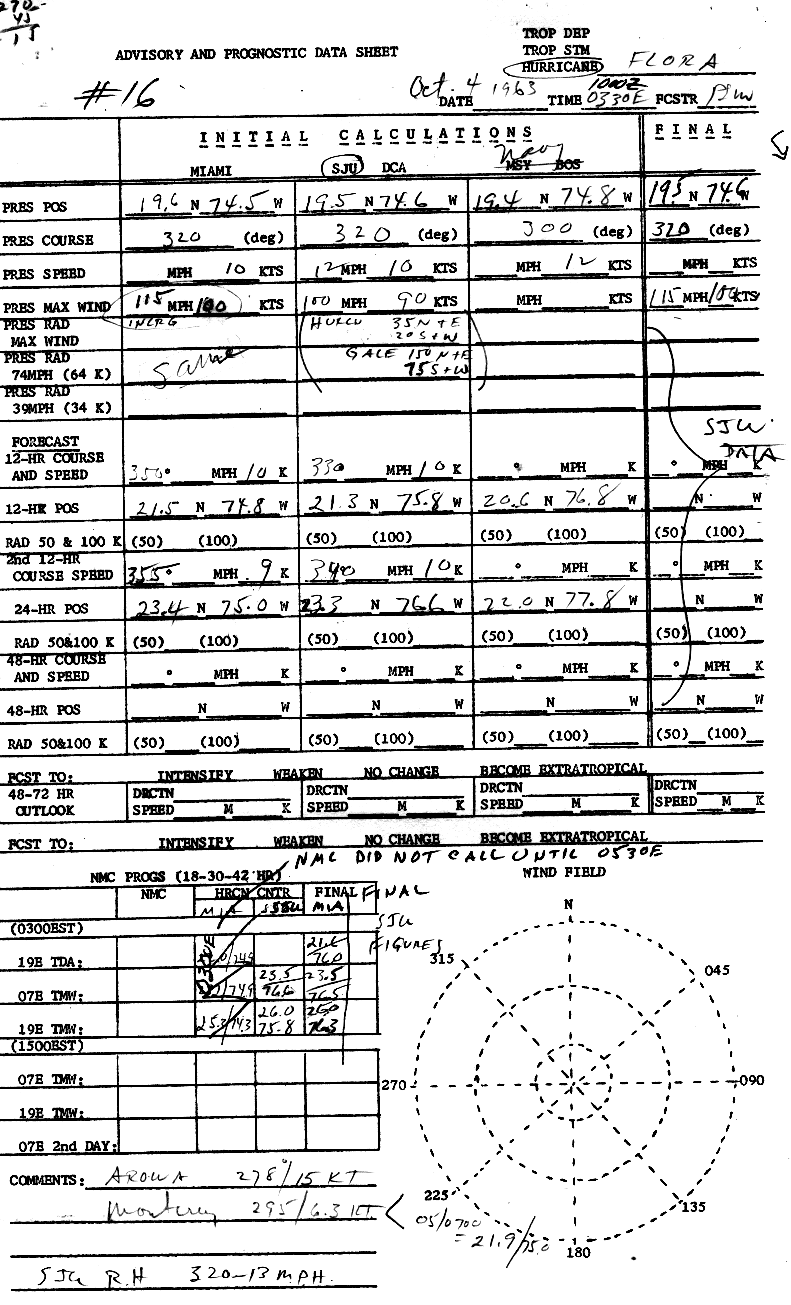 270-
45
15
TROP DEP
ADVISORY AND PROGNOSTIC DATA SHEET TROP STM
HURRICANE FLORA
#16 Oct. 4 1963 1000Z
DATE TIME 0330E FCSTR
INITIAL CALCULATIONS FINAL
Navy
MIAMI SJU DCA MSY BOS
PRES POS 19.6 N 74.5 W 19.5 N 74.6 W 19.4 N 74.8 W 19.5 N 74.6 W
PRES COURSE 320 (deg) 320 (deg) 300 (deg) 320 (deg)
PRES SPEED MPH 10 KTS 12 MPH 10 KTS MPH 12 KTS MPH KTS
PRES MAX WIND 115 MPH/100 KTS 100 MPH 90 KTS MPH KTS 115 MPH/100 KTS
PRES RAD INCRG HURCN 35 N+E
MAX WIND 20 S+W
PRES RAD Same GALE 150 N+E
74MPH (64 K) 75 S+W
PRES RAD
39MPH (34 K)
FORECAST SJU
12-HR COURSE DATA
AND SPEED 350° MPH 10 K 330 MPH 10 K ° MPH K ° MPH K
12-HR POS 21.5 N 74.8 W 21.3 N 75.8 W 20.6 N 76.8 W N W
RAD 50 & 100 K (50) (100) (50) (100) (50) (100) (50) (100)
2nd 12-HR
COURSE SPEED 355° MPH 9 K 340 MPH 10 K ° MPH K ° MPH K
24-HR POS 23.4 N 75.0 W 23.3 N 76.6 W 22.0 N 77.8 W N W
RAD 50&100 K (50) (100) (50) (100) (50) (100) (50) (100)
48-HR COURSE
AND SPEED ° MPH K ° MPH K ° MPH K ° MPH K
48-HR POS N W N W N W N W
RAD 50&100 K (50) (100) (50) (100) (50) (100) (50) (100)
FCST TO: INTENSIFY WEAKEN NO CHANGE BECOME EXTRATROPICAL
48-72 HR DRCTN DRCTN DRCTN DRCTN
OUTLOOK SPEED M K SPEED M K SPEED M K SPEED M K
FCST TO: INTENSIFY WEAKEN NO CHANGE BECOME EXTRATROPICAL
NMC DID NOT CALL UNTIL 0530E
NMC PROGS (18-30-42 HR) WIND FIELD
NMC HRCN CNTR FINAL FINAL
MIA SJU MIA SJU
(0300EST) FIGURES
21.6
19E TDA: 76.0
23.5 23.5
07E TMW: 74.9 76.6 76.5
26.0 26.0
19E TMW: 25.3/74.3 75.8 76.3
(1500EST)
07E TMW:
19E TMW:
07E 2nd DAY:
N
315 045
270 090
225 135
180
COMMENTS: AROWA 278°/15 KT
Monterey 295/6.3 KT
05/0700
= 21.9/75.0
SJU R.H 320-13 MPH.